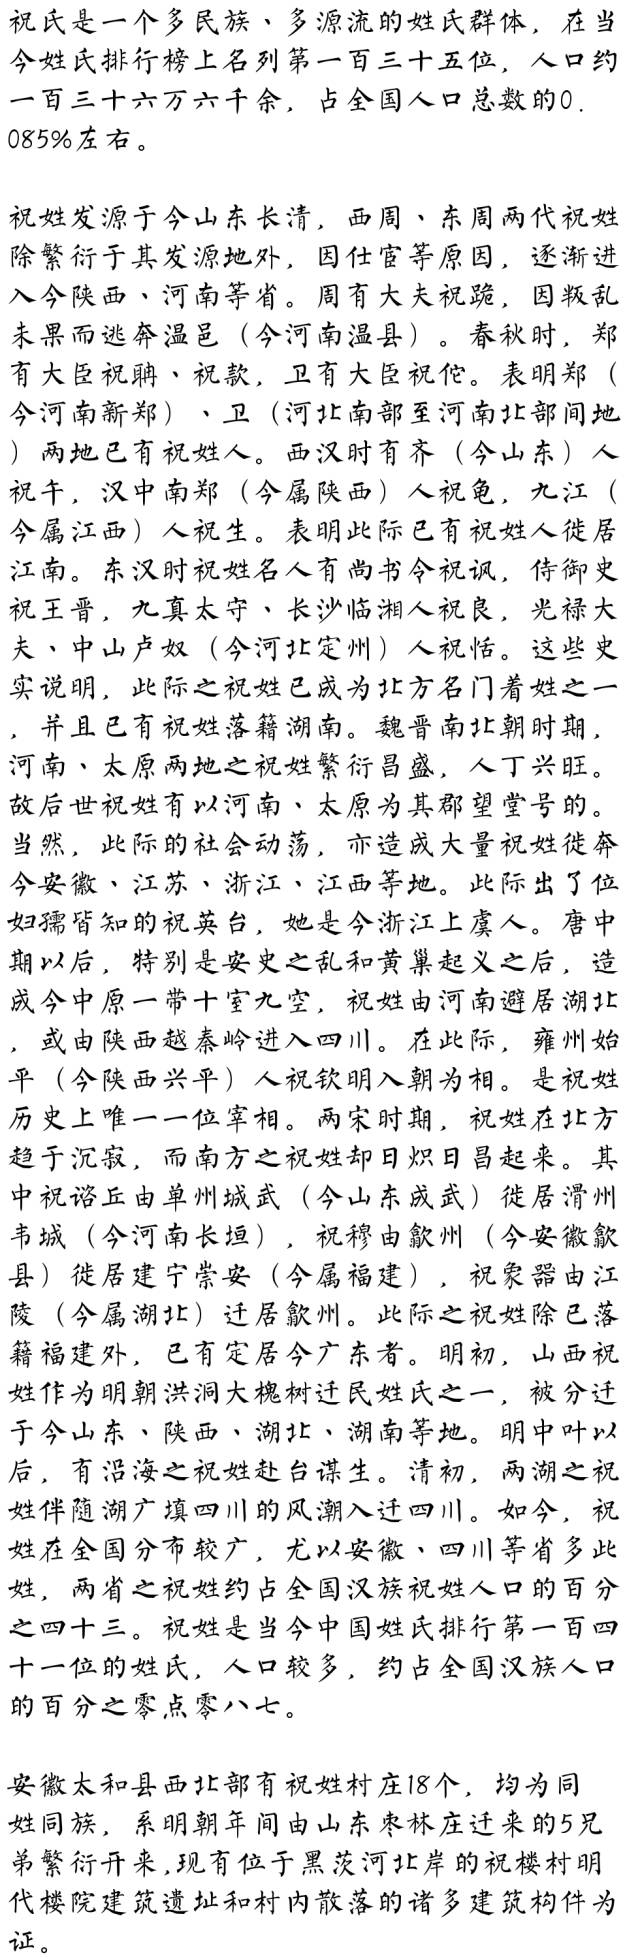 祝氏是一个多民族、多源流的姓氏群体，在当
今姓氏排行榜上名列第一百三十五位，人口约
一百三十六万六千余，占全国人口总数的0.
085%左右。
祝姓发源于今山东长清，西周、东周两代祝姓
除繁衍于其发源地外，因仕宦等原因，逐渐进
入今陕西、河南等省。周有大夫祝跪，因叛乱
未果而逃奔温邑（今河南温县）。春秋时，郑
有大臣祝聃、祝款，卫有大臣祝佗。表明郑（
今河南新郑）、卫（河北南部至河南北部间地
）两地已有祝姓人。西汉时有齐（今山东）人
祝午，汉中南郑（今属陕西）人祝龟，九江（
今属江西）人祝生。表明此际已有祝姓人徙居
江南。东汉时祝姓名人有尚书令祝讽，侍御史
祝王晋，九真太守、长沙临湘人祝良，光禄大
夫、中山卢奴（今河北定州）人祝恬。这些史
实说明，此际之祝姓已成为北方名门着姓之一
，并且已有祝姓落籍湖南。魏晋南北朝时期，
河南、太原两地之祝姓繁衍昌盛，人丁兴旺。
故后世祝姓有以河南、太原为其郡望堂号的。
当然，此际的社会动荡，亦造成大量祝姓徙奔
今安徽、江苏、浙江、江西等地。此际出了位
妇孺皆知的祝英台，她是今浙江上虞人。唐中
期以后，特别是安史之乱和黄巢起义之后，造
成今中原一带十室九空，祝姓由河南避居湖北
，或由陕西越秦岭进入四川。在此际，雍州始
平（今陕西兴平）人祝钦明入朝为相。是祝姓
历史上唯一一位宰相。两宋时期，祝姓在北方
趋于沉寂，而南方之祝姓却日炽日昌起来。其
中祝谘丘由单州城武（今山东成武）徙居滑州
韦城（今河南长垣），祝穆由歙州（今安徽歙
县）徙居建宁崇安（今属福建），祝象器由江
陵（今属湖北）迁居歙州。此际之祝姓除已落
籍福建外，已有定居今广东者。明初，山西祝
姓作为明朝洪洞大槐树迁民姓氏之一，被分迁
于今山东、陕西、湖北、湖南等地。明中叶以
后，有沿海之祝姓赴台谋生。清初，两湖之祝
姓伴随湖广填四川的风潮入迁四川。如今，祝
姓在全国分布较广，尤以安徽、四川等省多此
姓，两省之祝姓约占全国汉族祝姓人口的百分
之四十三。祝姓是当今中国姓氏排行第一百四
十一位的姓氏，人口较多，约占全国汉族人口
的百分之零点零八七。
安徽太和县西北部有祝姓村庄18个，均为同
姓同族，系明朝年间由山东枣林庄迁来的5兄
弟繁衍开来,现有位于黑茨河北岸的祝楼村明
代楼院建筑遗址和村内散落的诸多建筑构件为
证。